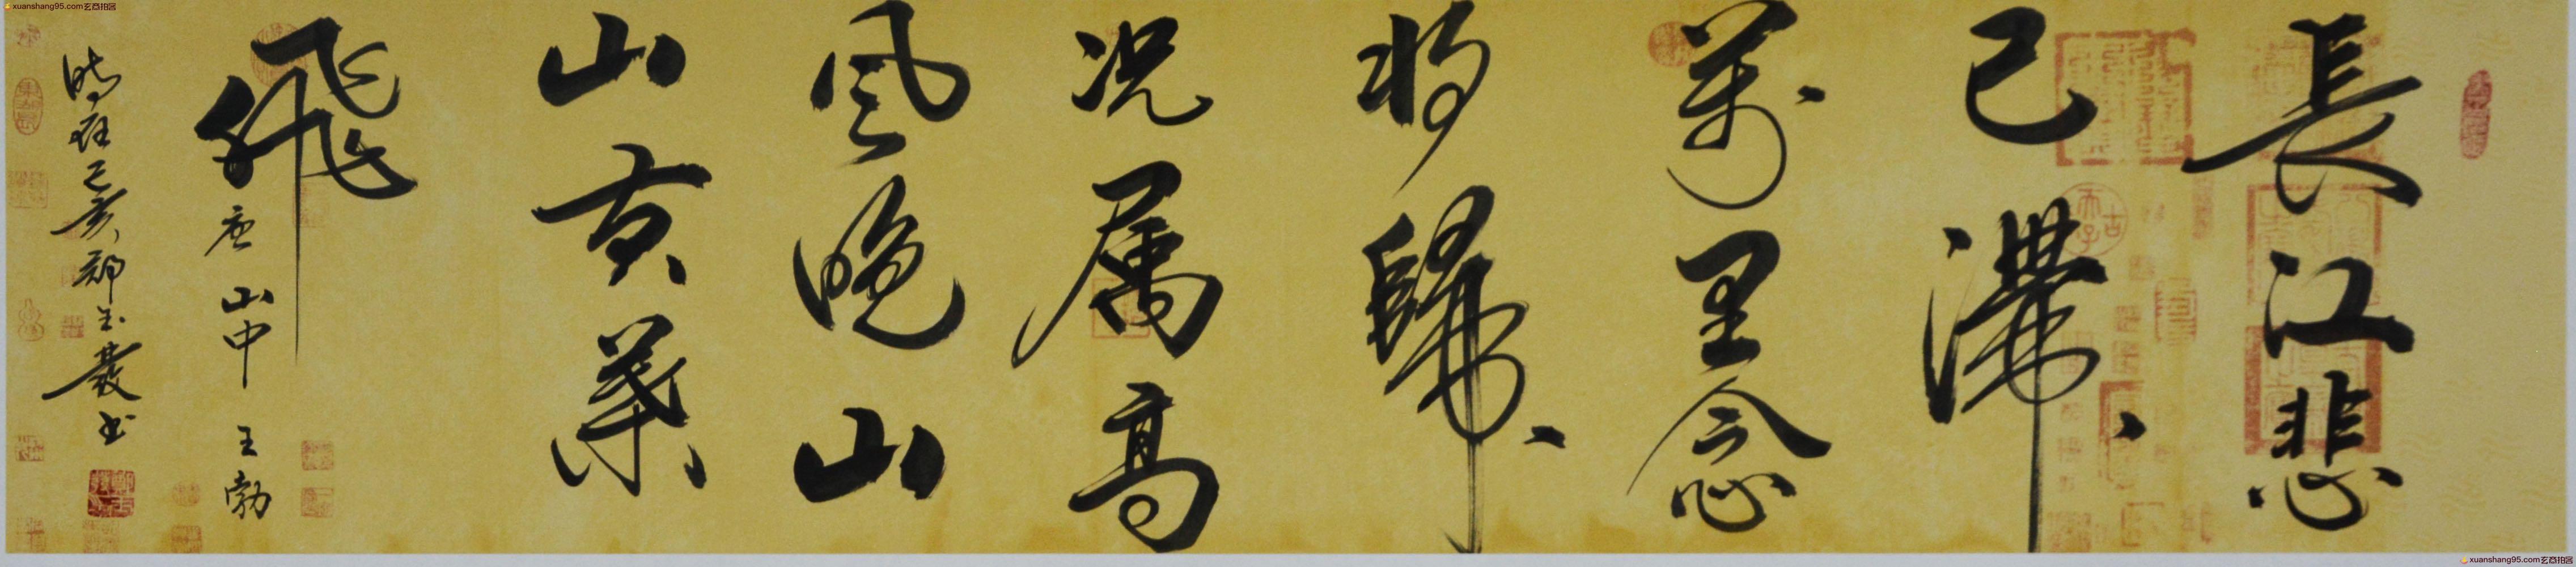 長江悲
已滯
萬里念
將歸
况属高
風晚山
山黄葉
飛
唐 山中 王勃
時在己亥 鄭
書
xuanshang95.com玄商拍客
xuanshang95.com玄商拍客